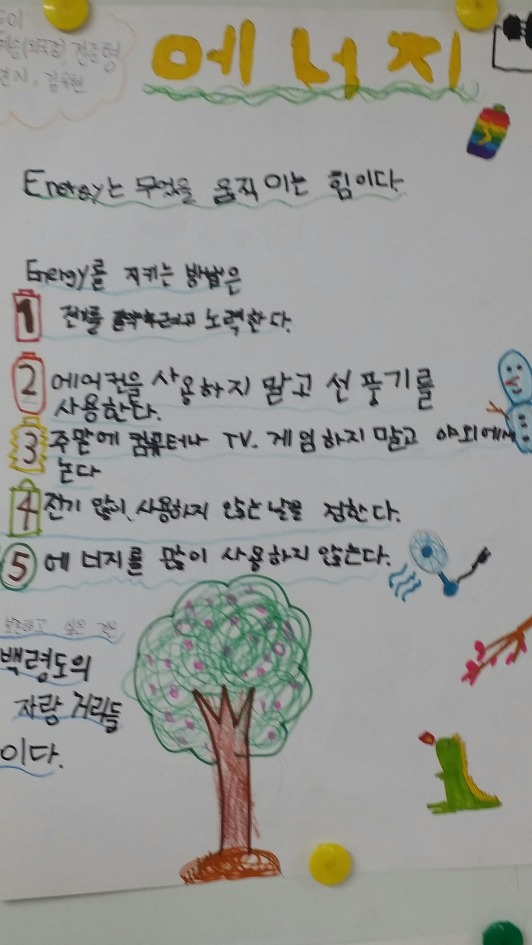 에너지
Energy는 무엇을 움직이는 힘이다.
Energy를 지키는 방법은
1 전기를 노력한다.
2 에어컨을 사용하지 말고 선풍기를
사용한다.
3 주말에 컴퓨터나 TV. 게임하지 말고 야외에서
논다
4 전기 많이 사용하지 않는 날을 정한다.
5 에너지를 많이 사용하지 않는다.
보존하고 싶은 것은
백령도의
자랑거리들
이다.